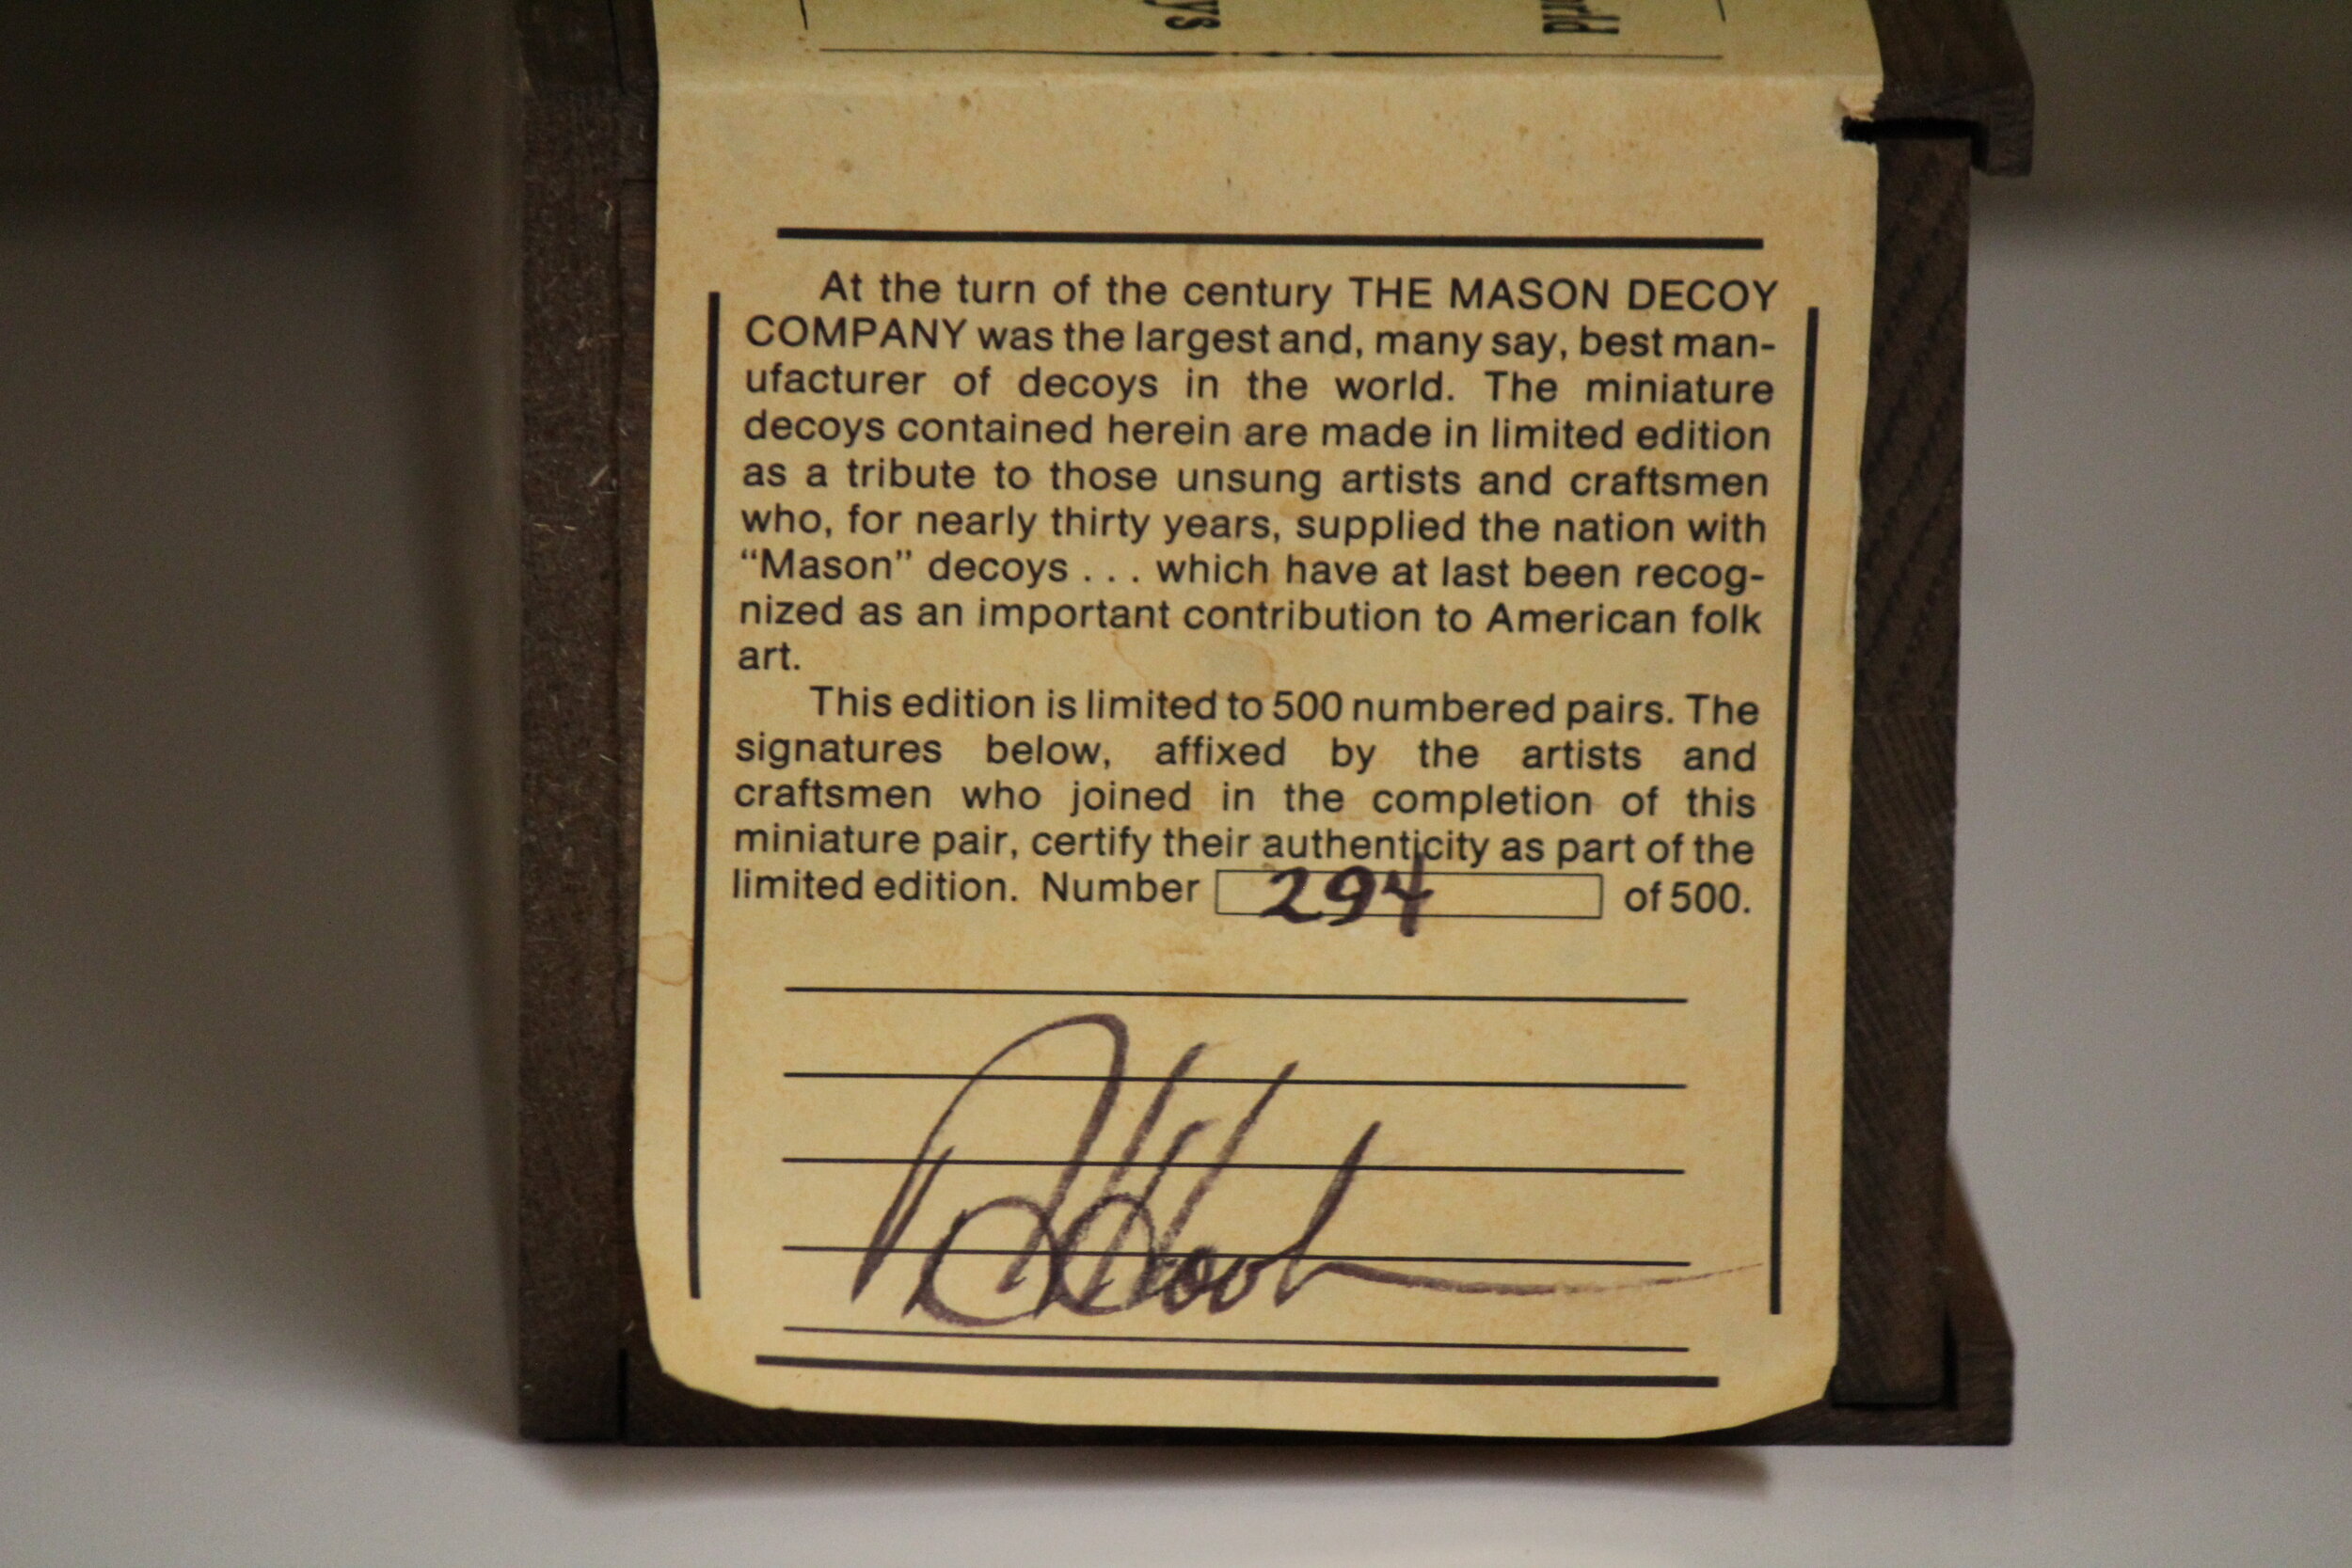 At the turn of the century THE MASON DECOY
COMPANY was the largest and, many say, best man-
ufacturer of decoys in the world. The miniature
decoys contained herein are made in limited edition
as a tribute to those unsung artists and craftsmen
who, for nearly thirty years, supplied the nation with
“Mason” decoys . . . which have at last been recog-
nized as an important contribution to American folk
art.
This edition is limited to 500 numbered pairs. The
signatures below, affixed by the artists and
craftsmen who joined in the completion of this
miniature pair, certify their authenticity as part of the
limited edition. Number 294 of 500.